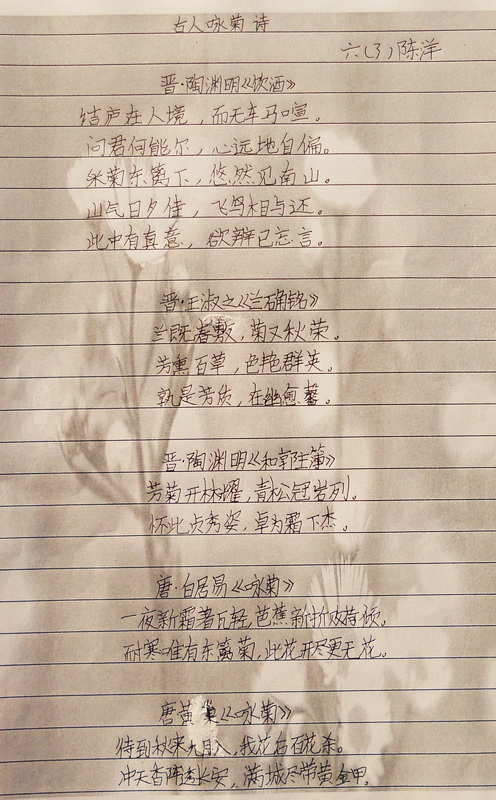 古人咏菊诗
六(3)陈洋
晋·陶渊明《饮酒》
结庐在人境，而无车马喧。
问君何能尔，心远地自偏。
采菊东篱下，悠然见南山。
山气日夕佳，飞鸟相与还。
此中有真意，欲辨已忘言。
晋·王淑之《兰确铭》
兰既春敷，菊又秋荣。
芳熏百草，色艳群英。
孰是芳质，在幽愈馨。
晋·陶渊明《和郭主簿》
芳菊开林耀，青松冠岩列。
怀此贞秀姿，卓为霜下杰。
唐·白居易《咏菊》
一夜新霜著瓦轻，芭蕉新折败荷倾。
耐寒唯有东篱菊，此花开尽更无花。
唐黄巢《咏菊》
待到秋来九月八，我花开百花杀。
冲天香阵透长安，满城尽带黄金甲。